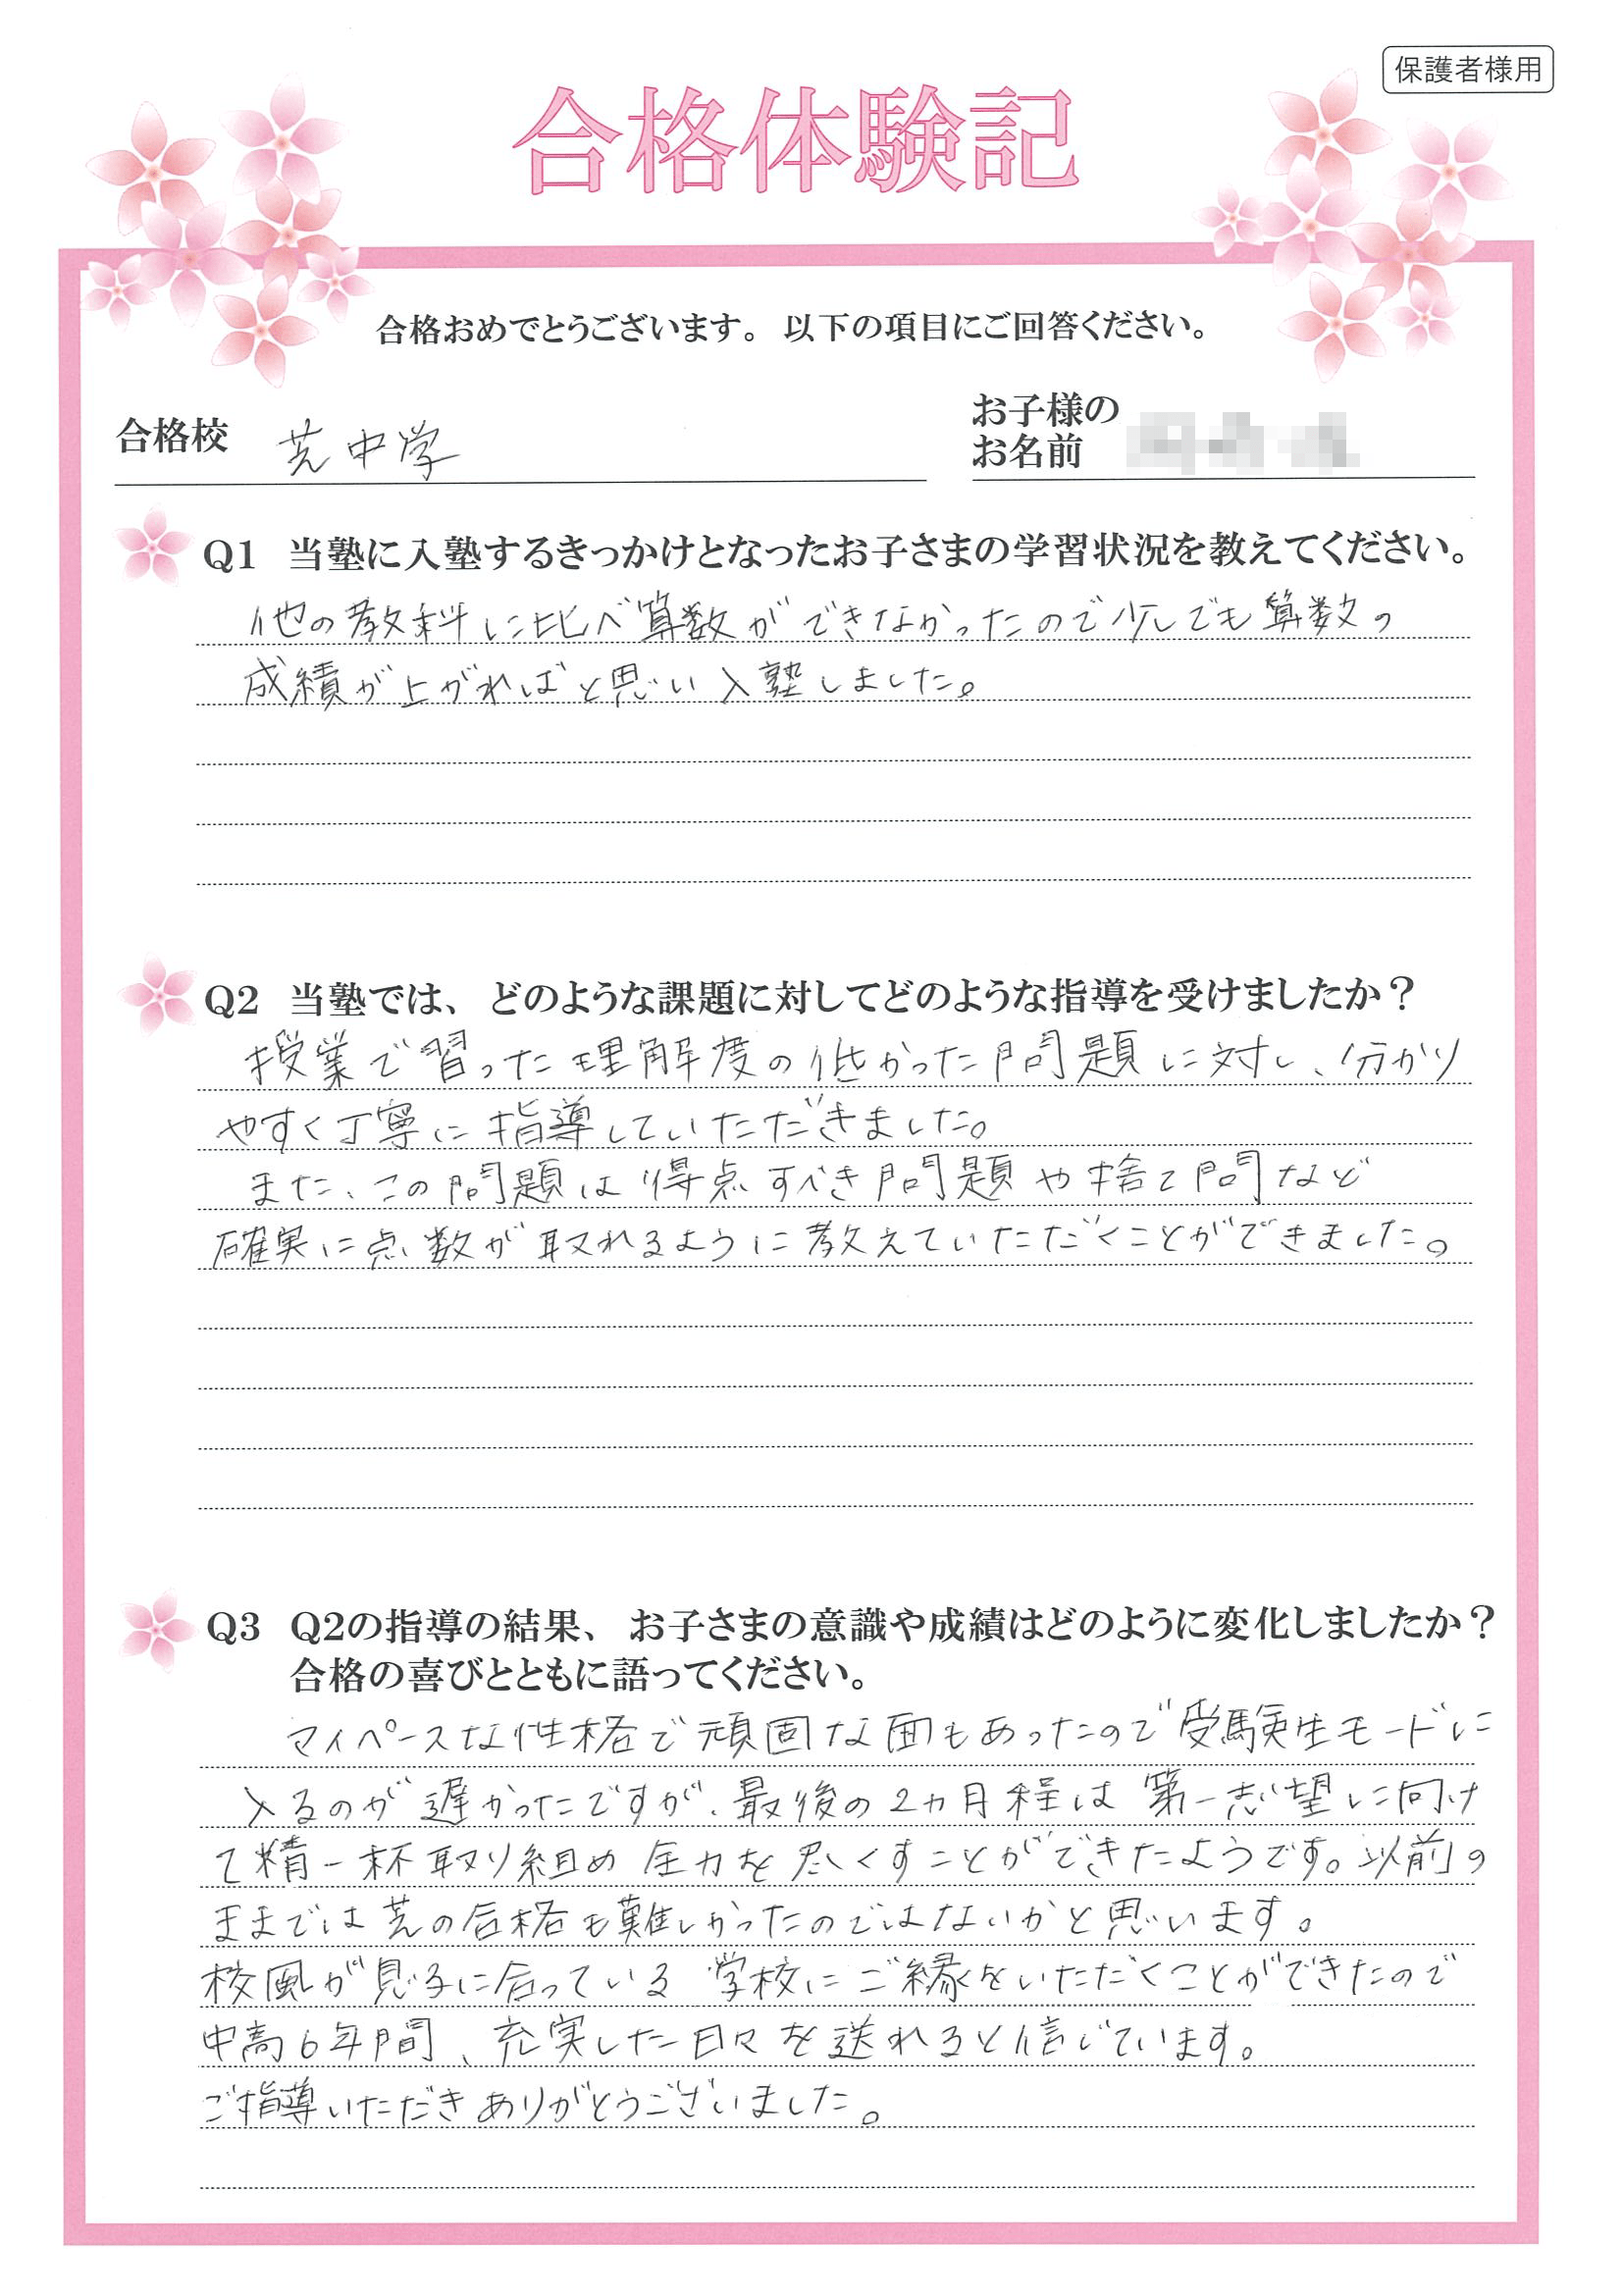 保護者様用
合格体験記
合格おめでとうございます。 以下の項目にご回答ください。
合格校 芝中学
お子様の
お名前
Q1 当塾に入塾するきっかけとなったお子さまの学習状況を教えてください。
他の教科に比べ算数ができなかったので少しでも算数の
成績が上がればと思い入塾しました。
Q2 当塾では、どのような課題に対してどのような指導を受けましたか？
授業で習った理解度の低かった問題に対し、分かり
やすく丁寧に指導していただきました。
また、この問題は得点すべき問題や捨て問など
確実に点数が取れるように教えていただくことができました。
Q3 Q2の指導の結果、お子さまの意識や成績はどのように変化しましたか？
合格の喜びとともに語ってください。
マイペースな性格で頑固な面もあったので受験生モードに
入るのが遅かったですが、最後の2ヵ月程は第一志望に向け
て精一杯取り組め全力を尽くすことができたようです。以前の
ままでは芝の合格も難しかったのではないかと思います。
校風が息子に合っている学校にご縁をいただくことができたので
中高6年間、充実した日々を送れると信じています。
ご指導いただきありがとうございました。